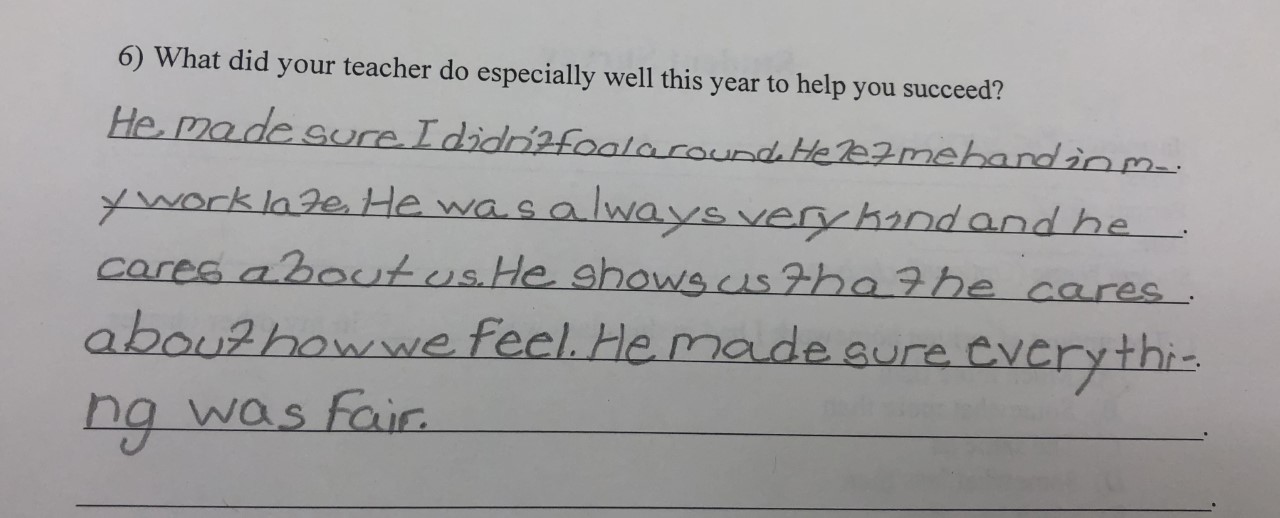 6) What did your teacher do especially well this year to help you succeed?
He made sure I didn't fool around. He let me hand in m-
y work late. He was always very kind and he
cares about us. He shows us that he cares
about how we feel. He made sure everythi-
ng was fair.